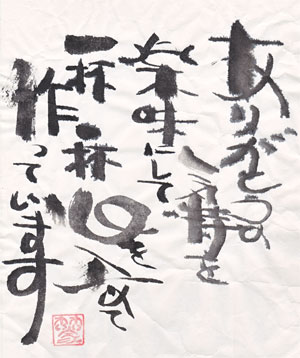 ありがとうの
気持を
薬味にして
一杯一杯
心を込めて
作っています